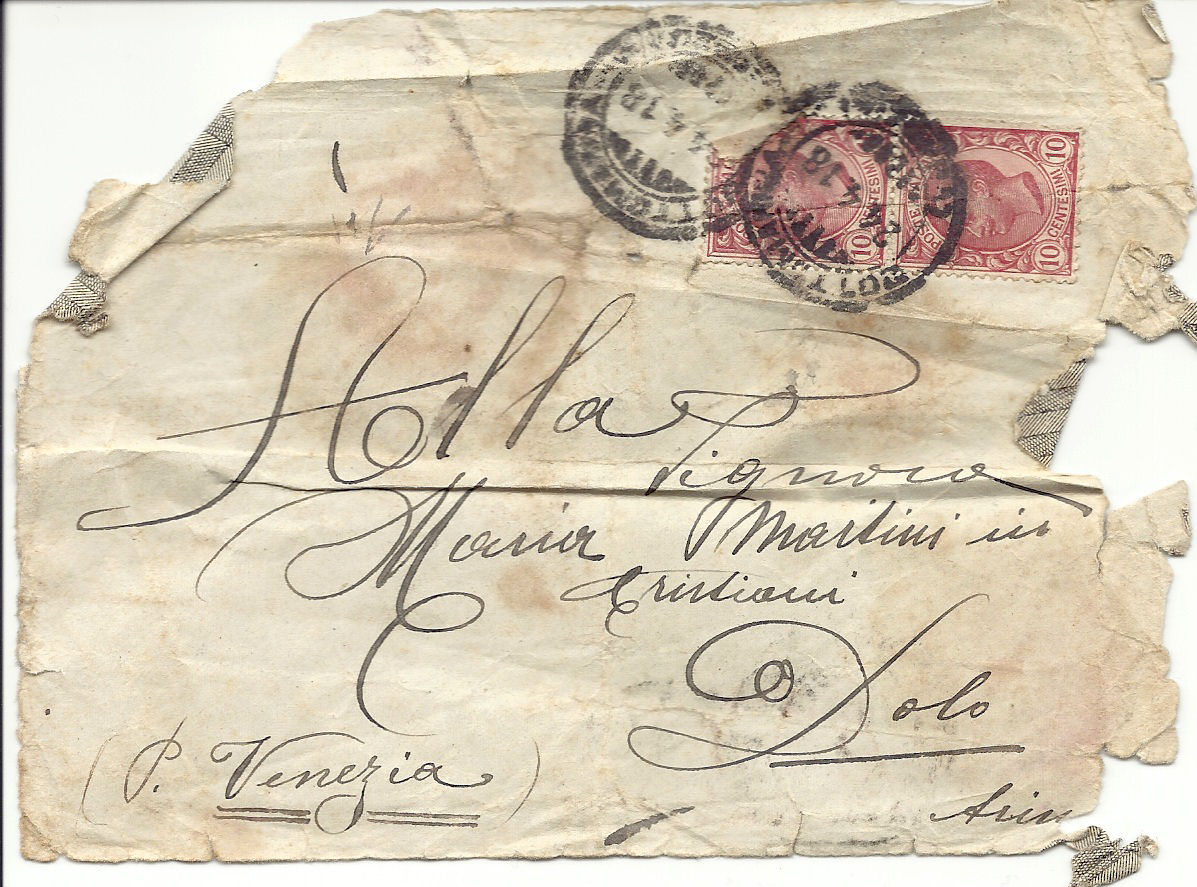 10 CENTESIMI 10
POSTE
10
CENTESIMI
4.4.18
Alla Signora
Maria Martini in
Cristiani
Dolo
(P. Venezia)